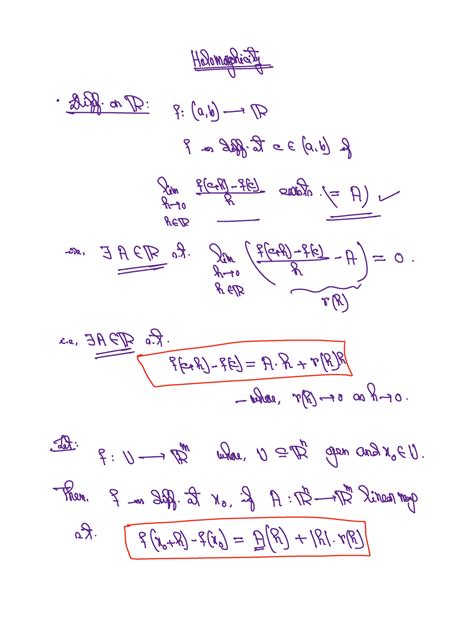 Holomorphicity
• Diff. on ℝ: f: (a,b) ⟶ ℝ
f is diff. at c ∈ (a,b) if
lim_{h→0, h∈ℝ} (f(c+h) − f(c))/h exists (= A) ✓
i.e., ∃ A ∈ ℝ s.t. lim_{h→0, h∈ℝ} ( (f(c+h) − f(c))/h − A ) = 0.
r(h)
i.e., ∃ A ∈ ℝ s.t.
f(c+h) − f(c) = A·h + r(h)h
– where, r(h) → 0 as h → 0.
Def: f: U ⟶ ℝ^m where, U ⊆ ℝ^n open and x₀ ∈ U.
Then, f is diff. at x₀, if A: ℝ^n ⟶ ℝ^m linear map
s.t. f(x₀+h) − f(x₀) = A(h) + |h|·r(h)